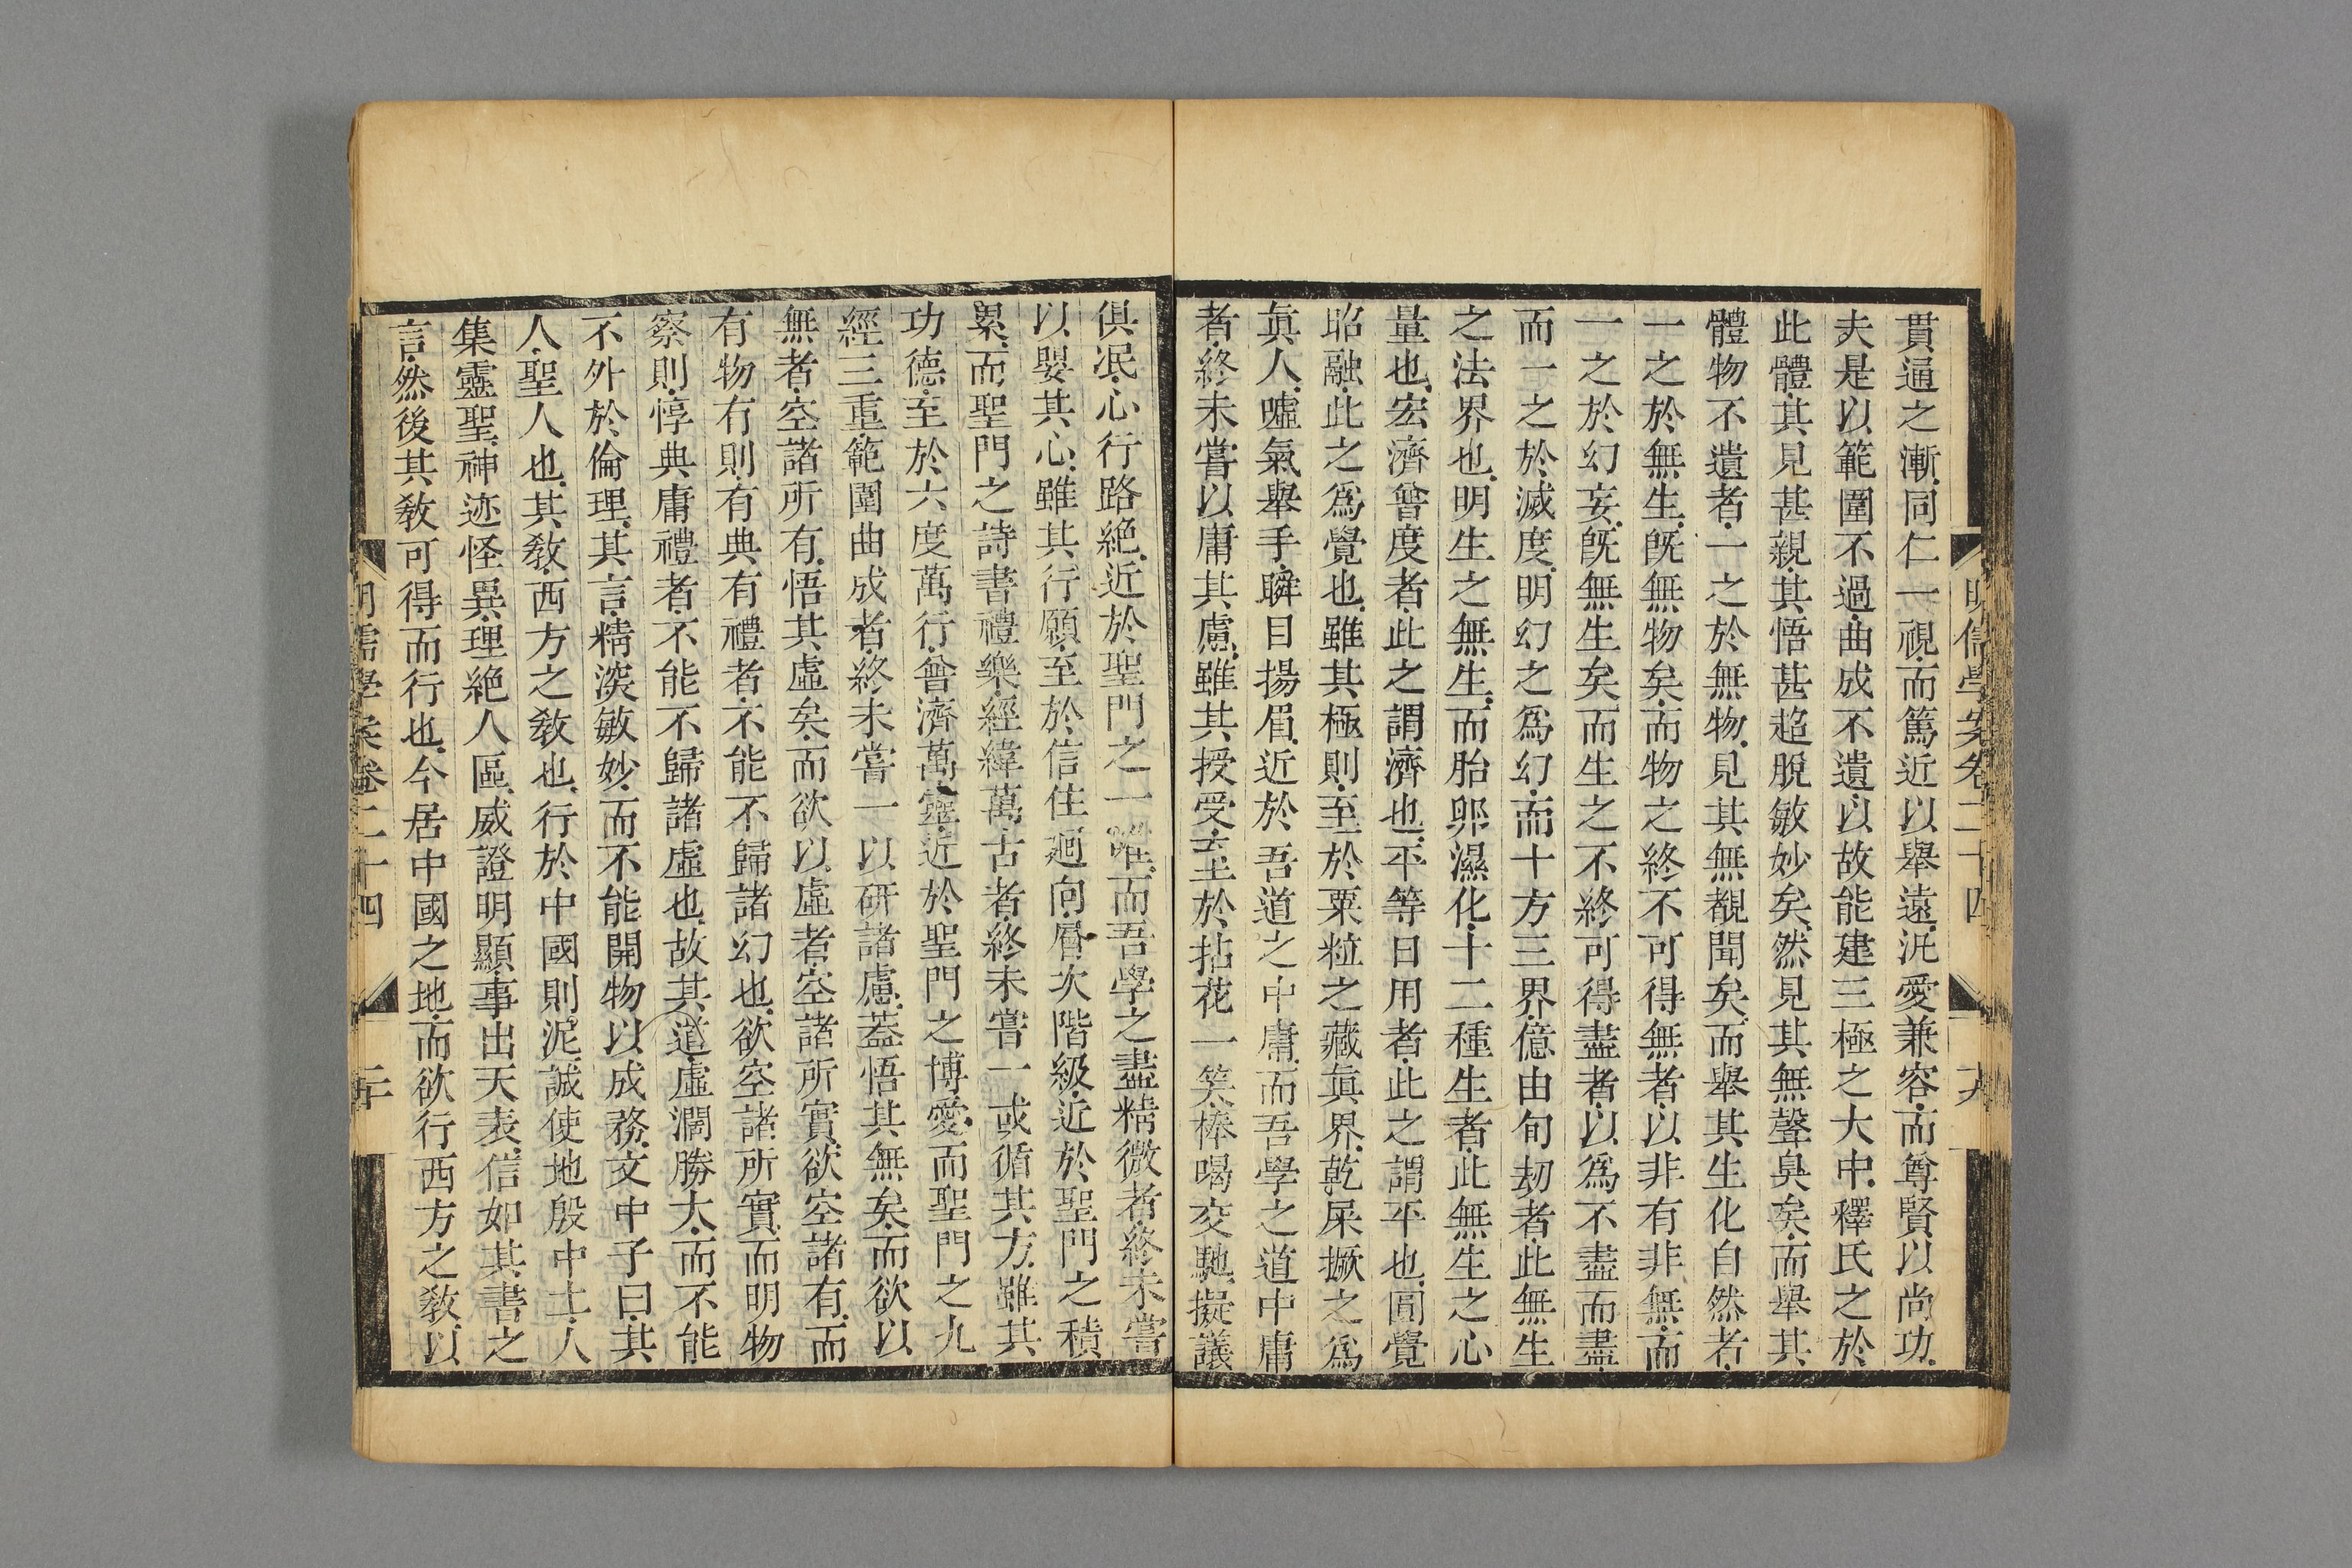 明儒學案卷二十四
貫通之漸.同仁一視.而篤近以舉遠.汎愛兼容.而尊賢以尚功.
夫是以範圍不過.曲成不遺.以故能建三極之大中.釋氏之於
此體.其見甚親.其悟甚超脫敏妙矣.然見其無聲臭矣.而舉其
體物不遺者.一之於無物.見其無覩聞矣.而舉其生化自然者.
一之於無生.旣無物矣.而物之終不可得無者.以非有非無.而
一之於幻妄.旣無生矣.而生之不終可得盡者.以爲不盡而盡.
而一之於滅度.明幻之爲幻.而十方三界.億由旬劫者.此無生
之法界也.明生之無生.而胎卵濕化.十二種生者.此無生之心
量也.宏濟曾度者.此之謂濟也.平等日用者.此之謂平也.圓覺
昭融.此之爲覺也.雖其極則.至於粟粒之藏眞界.乾屎撅之爲
眞人.噓氣舉手.瞬目揚眉.近於吾道之中庸.而吾學之道中庸
者.終未嘗以庸其慮.雖其授受.至於拈花一笑.棒喝交馳.擬議
俱泯.心行路絕.近於聖門之一唯.而吾學之盡精微者.終未嘗
以嬰其心.雖其行願.至於信住廻向.層次階級.近於聖門之積
累.而聖門之詩書禮樂.經緯萬古者.終未嘗一或循其方.雖其
功德.至於六度萬行.曾濟萬靈.近於聖門之博愛.而聖門之九
經三重.範圍曲成者.終未嘗一以研諸慮.蓋悟其無矣.而欲以
無者.空諸所有.悟其虛矣.而欲以虛者.空諸所實.欲空諸有.而
有物有則.有典有禮者.不能不歸諸幻也.欲空諸所實.而明物
察則.惇典庸禮者.不能不歸諸虛也.故其道虛濶勝大.而不能
不外於倫理.其言精深敏妙.而不能開物以成務.文中子曰.其
人.聖人也.其敎.西方之敎也.行於中國則泥.誠使地殷中土.人
集靈聖.神迹怪異.理絕人區.威證明顯.事出天表.信如其書之
言.然後其敎可得而行也.今居中國之地.而欲行西方之敎.以
明儒學案卷二十四